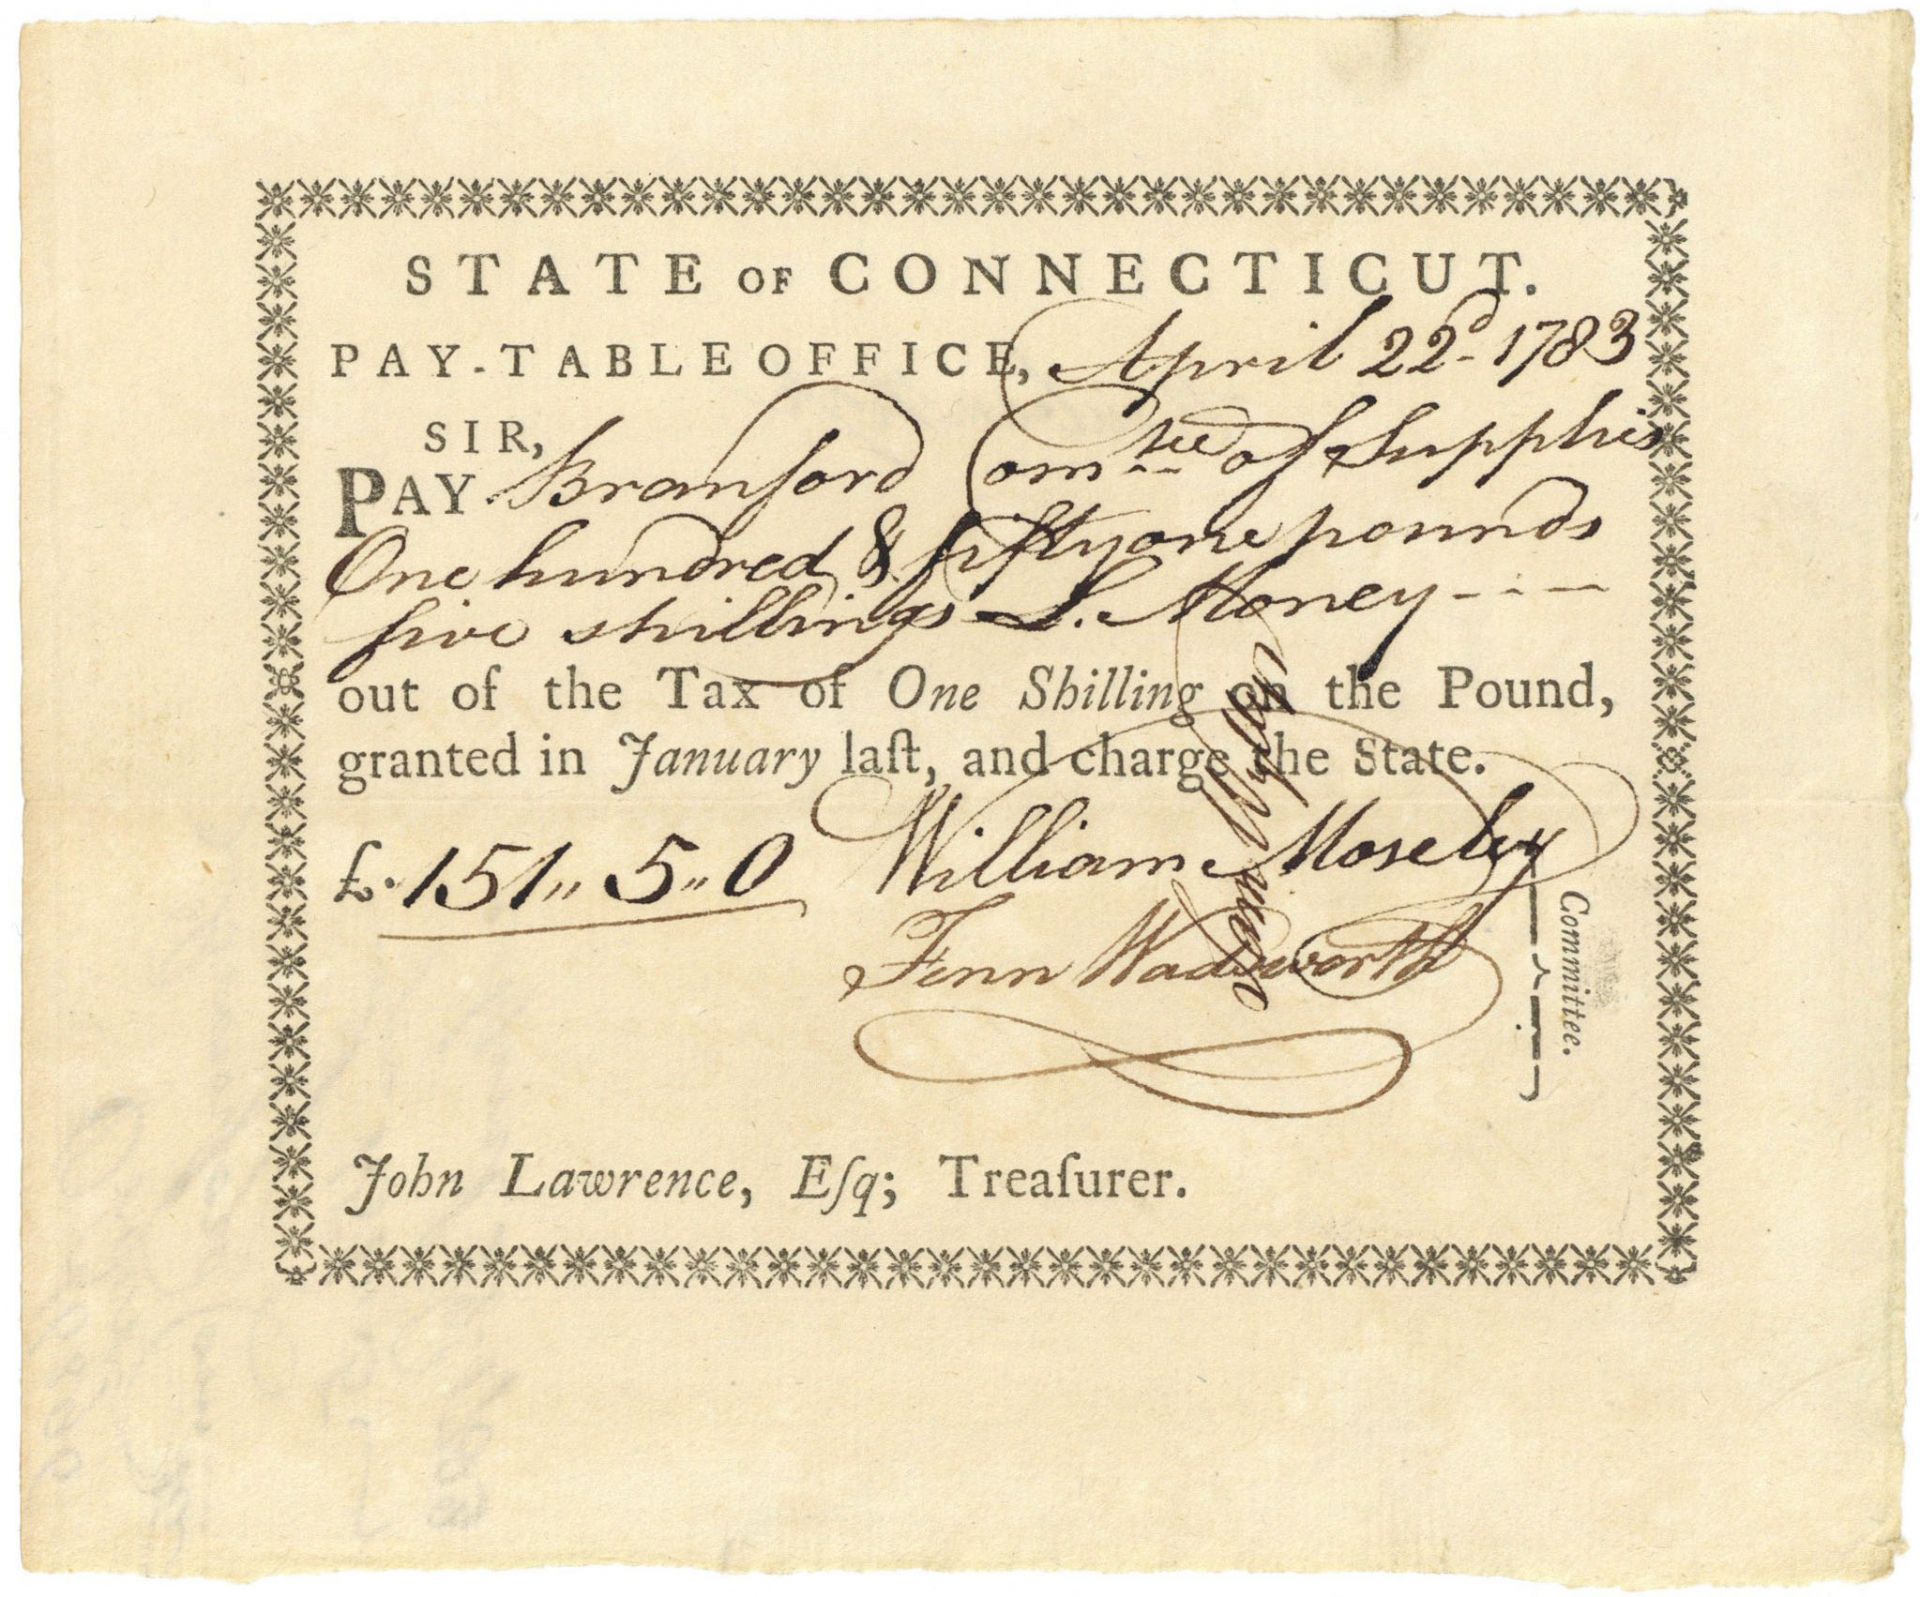 STATE OF CONNECTICUT.
PAY-TABLE OFFICE, April 22d. 1783
SIR,
PAY Branford Comtee of Supplies
One hundred & fifty one pounds
five shillings L. Money - - - -
out of the Tax of One Shilling on the Pound,
granted in January laſt, and charge the State.
£. 151,, 5,, 0
William Moseley
Fenn Wadsworth
Committee.
Sam Wyllys
John Lawrence, Eſq; Treaſurer.